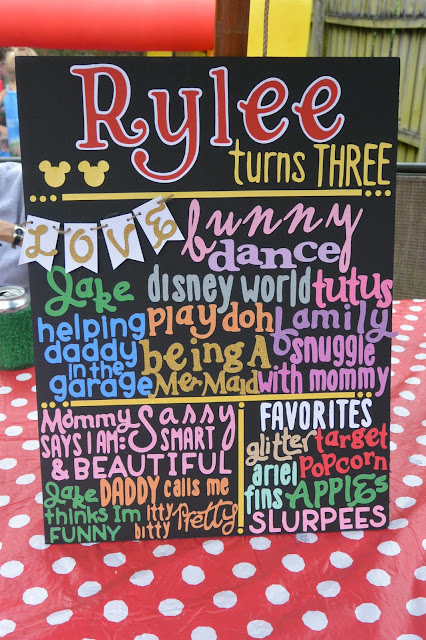 Rylee
turns THREE...
LOVE bunny
dance
Jake disney world tutus
helping play doh family
daddy being A snuggle
in the Mer-Maid with mommy
garage
Mommy Sassy
SAYS I AM: SMART
& BEAUTIFUL
Jake DADDY calls me
thinks Im Itty Pretty
FUNNY bitty
FAVORITES
glitter target
ariel POPCORN
fins APPLES
SLURPEES